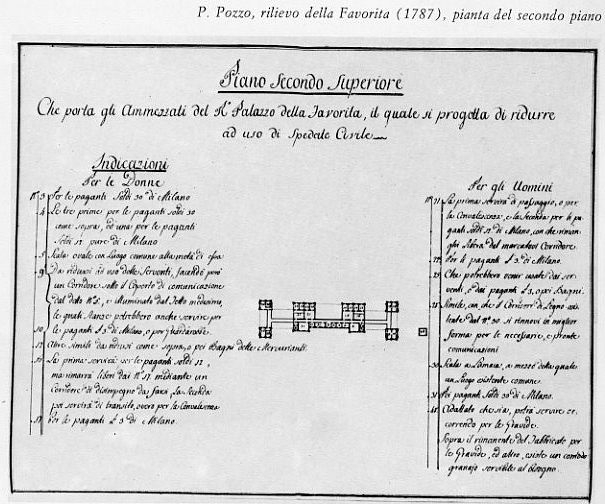 P. Pozzo, rilievo della Favorita (1787), pianta del secondo piano
Piano Secondo Superiore
Che porta gli Ammezzati del R. Palazzo della Favorita, il quale si progetta di ridurre
ad uso di Spedale Civile
Indicazioni
Per le Donne
3 Per le paganti Soldi 30 di Milano
4 Le tre prime per le paganti soldi 30
come sopra, ed una per le paganti
soldi 12 pure di Milano
Scala ovale con Luogo comune alla metà di essa
Da ridursi ad uso delle Serventi, facendo però
un Corridore sotto il Coperto di comunicazione
dal detto e illuminato dal Tetto medesimo,
le quali Stanze potrebbero anche servire per
10 le paganti di Milano, o per Guardarobbe
12 Altre simili da ridursi come sopra, o pei Bagni delle Mercurianti
La prima servirà per le paganti soldi 12,
ma rimarrà liberi dai mediante un
Corridore di disimpegno da farsi. La Seconda
poi servirà di transito, ovvero per la Convalescenza
Per le paganti di Milano
Per gli Uomini
21 La prima servirà di passaggio, o per
la Convalescenza, e la Seconda per li pa
ganti Soldi di Milano, con che riman
ghi libera dal marcatovi Corridore
Per li paganti di Milano
Che potrebbero esser usate dai ser
venti, e dai paganti o per Bagni
Simile, con che il Corridore di Legno esis
tente dal 30 si rinnovi in miglior
forma per le necessarie, e pronte
comunicazioni
30 Scala a Lumaca, a mezzo della quale
un Luogo esistente comune
31 Pei paganti Soldi 30 di Milano
Adattato che sia, potrà servire oc
correndo per le Gravide
Sopra il rimanente del Fabbricato per
le Gravide, ed altro, esiste un comodo
granajo servibile al bisogno